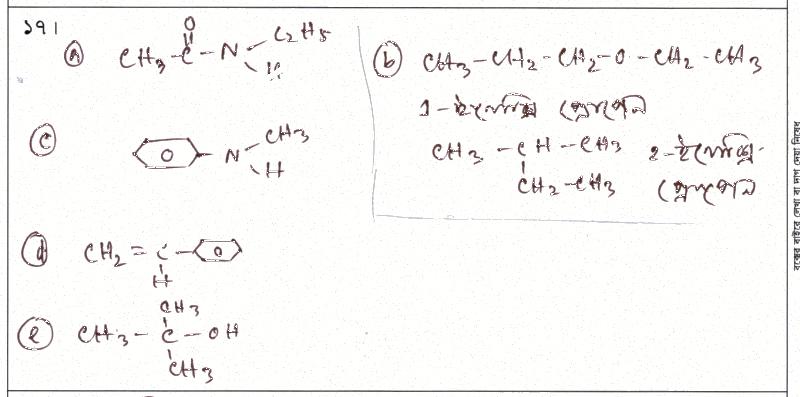 ১৭।
(a) CH3-C(=O)-N(C2H5)(H)
(b) CH3-CH2-CH2-O-CH2-CH3
1-ইথোক্সি প্রোপেন
CH3-CH-CH3 2-ইথোক্সি-
CH2-CH3 প্রোপেন
(c) N CH3
H
(d) CH2=C
H
(e) CH3
CH3-C-OH
CH3
বক্সের বাইরে লেখা বা দাগ দেয়া নিষেধ